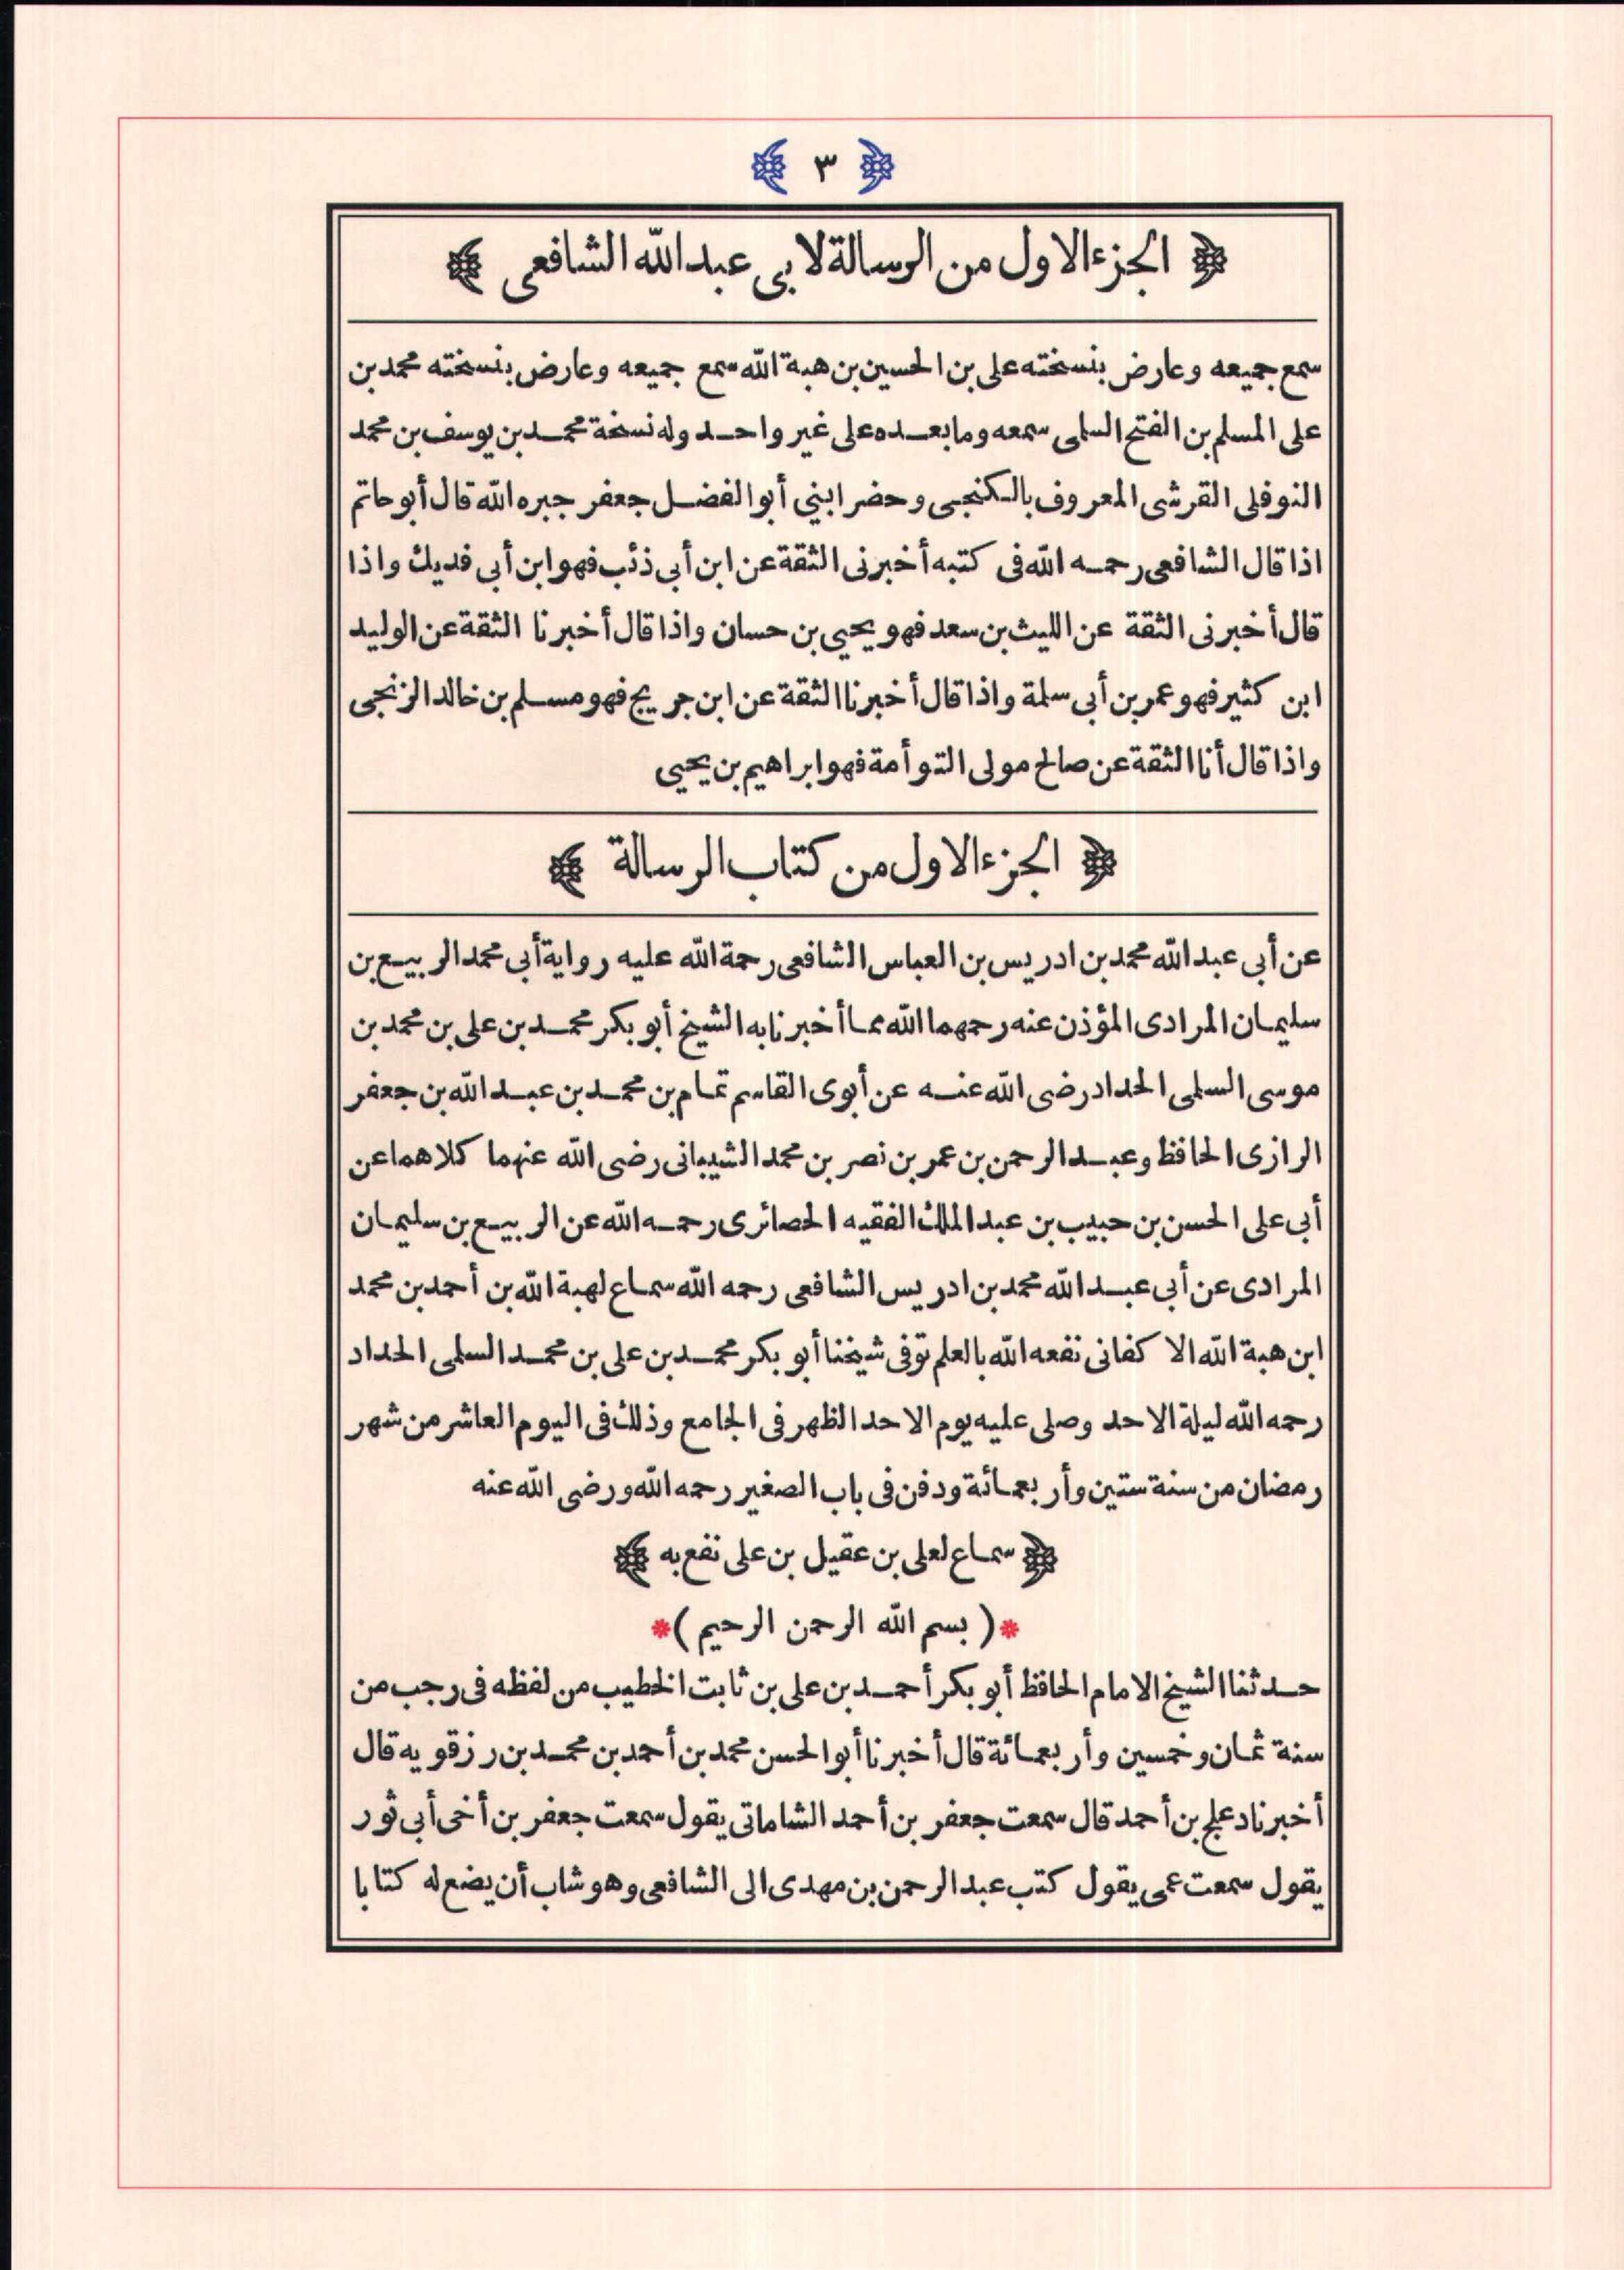 ﴿ ٣ ﴾
﴿ الجزء الاول من الرسالة لابى عبدالله الشافعى ﴾
سمع جميعه وعارض بنسخته على بن الحسين بن هبة الله سمع جميعه وعارض بنسخته محمد بن
على المسلم بن الفتح السلمى سمعه وما بعده على غير واحد وله نسخة محمد بن يوسف بن محمد
النوفلى القرشى المعروف بالكنجى وحضر ابني أبو الفضل جعفر جبره الله قال أبو حاتم
اذا قال الشافعى رحمه الله فى كتبه أخبرنى الثقة عن ابن أبى ذئب فهو ابن أبى فديك واذا
قال أخبرنى الثقة عن الليث بن سعد فهو يحيى بن حسان واذا قال أخبرنا الثقة عن الوليد
ابن كثير فهو عمر بن أبى سلمة واذا قال أخبرنا الثقة عن ابن جريج فهو مسلم بن خالد الزنجى
واذا قال أنا الثقة عن صالح مولى التوأمة فهو ابراهيم بن يحيى
﴿ الجزء الاول من كتاب الرسالة ﴾
عن أبى عبد الله محمد بن ادريس بن العباس الشافعى رحمة الله عليه رواية أبى محمد الربيع بن
سليمان المرادى المؤذن عنه رحمهما الله مما أخبرنا به الشيخ أبو بكر محمد بن على بن محمد بن
موسى السلمى الحداد رضى الله عنه عن أبوى القاسم تمام بن محمد بن عبد الله بن جعفر
الرازى الحافظ وعبد الرحمن بن عمر بن نصر بن محمد الشيبانى رضى الله عنهما كلاهما عن
أبى على الحسن بن حبيب بن عبد الملك الفقيه الحصائرى رحمه الله عن الربيع بن سليمان
المرادى عن أبى عبد الله محمد بن ادريس الشافعى رحمه الله سماع لهبة الله بن أحمد بن محمد
ابن هبة الله الاكفانى نفعه الله بالعلم توفى شيخنا أبو بكر محمد بن على بن محمد السلمى الحداد
رحمه الله ليلة الاحد وصلى عليه يوم الاحد الظهر فى الجامع وذلك فى اليوم العاشر من شهر
رمضان من سنة ستين وأربعمائة ودفن فى باب الصغير رحمه الله ورضى الله عنه
﴿ سماع لعلى بن عقيل بن على نفع به ﴾
*( بسم الله الرحمن الرحيم )*
حدثنا الشيخ الامام الحافظ أبو بكر أحمد بن على بن ثابت الخطيب من لفظه فى رجب من
سنة ثمان وخمسين وأربعمائة قال أخبرنا أبو الحسن محمد بن أحمد بن محمد بن رزقويه قال
أخبرنا دعلج بن أحمد قال سمعت جعفر بن أحمد الشاماتى يقول سمعت جعفر بن أخى أبى ثور
يقول سمعت عمى يقول كتب عبد الرحمن بن مهدى الى الشافعى وهو شاب أن يضع له كتابا